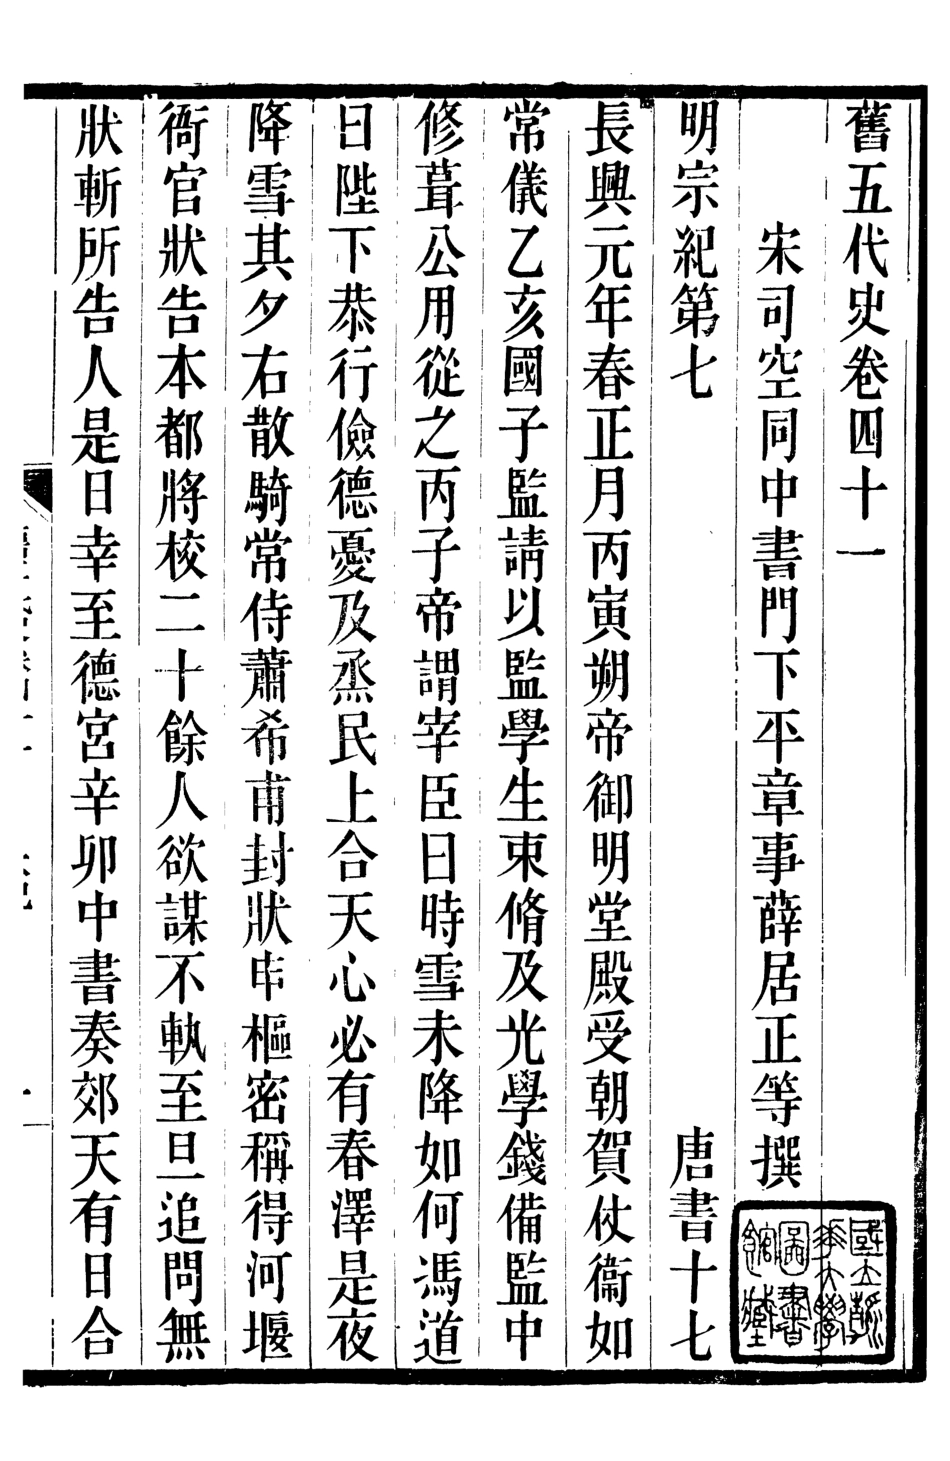 舊五代史卷四十一
宋司空同中書門下平章事薛居正等撰
明宗紀第七 唐書十七
長興元年春正月丙寅朔帝御明堂殿受朝賀仗衞如
常儀乙亥國子監請以監學生束脩及光學錢備監中
修葺公用從之丙子帝謂宰臣曰時雪未降如何馮道
曰陛下恭行儉德憂及烝民上合天心必有春澤是夜
降雪其夕右散騎常侍蕭希甫封狀申樞密稱得河堰
衙官狀告本都將校二十餘人欲謀不軌至旦追問無
狀斬所告人是日幸至德宮辛卯中書奏郊天有日合